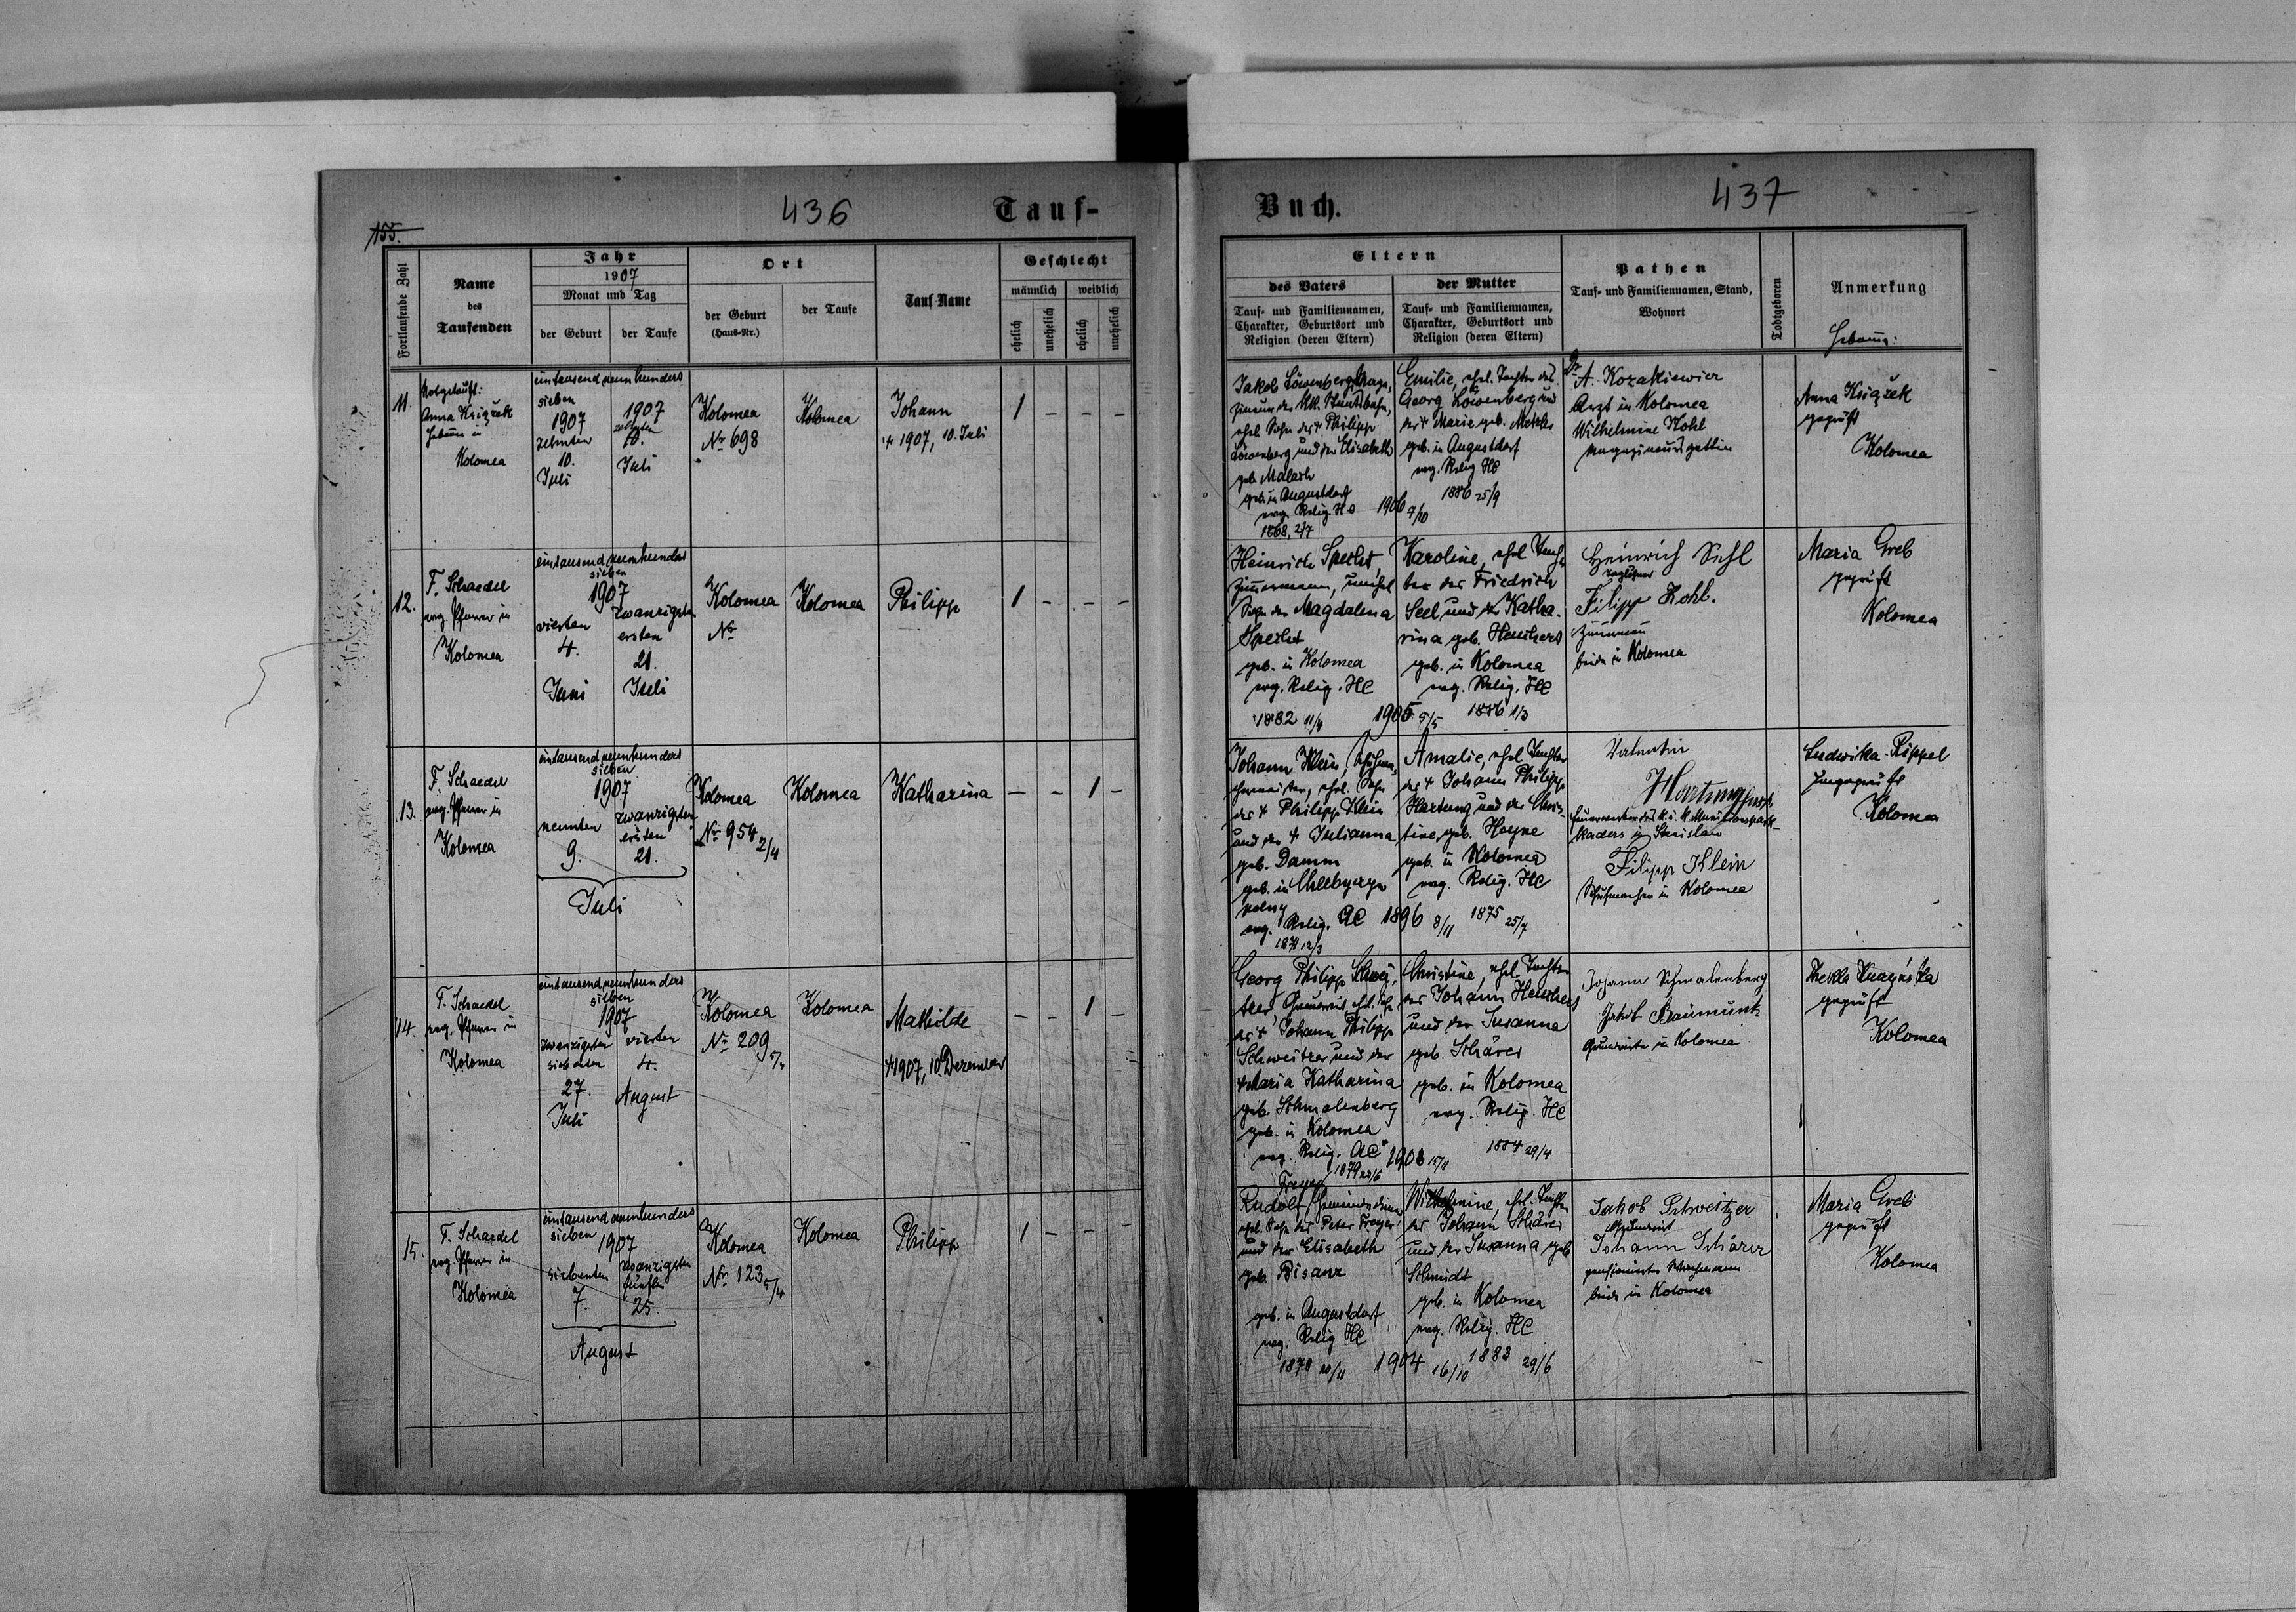 436
Tauf-
155.
Fortlaufende Zahl
Name
des
Taufenden
Jahr
1907
Monat und Tag
der Geburt
der Taufe
Ort
der Geburt
(Haus-Nr.)
der Taufe
Tauf-Name
Geschlecht
männlich
weiblich
ehelich
unehelich
ehelich
unehelich
11.
Notgetauft:
Anna Książek
Hebamme in
Kolomea
eintausend neunhundert
sieben
1907
zehnten
10.
Juli
1907
zehnten
10.
Juli
Kolomea
Nr 698
Kolomea
Johann
+ 1907, 10. Juli
1 - - -
12.
F. Schaedel
evg. Pfarrer in
Kolomea
eintausend neunhundert
sieben
1907
vierten
4.
Juni
zwanzigsten
ersten
21.
Juli
Kolomea
Nr
Kolomea
Philipp
1 - - -
13.
F. Schaedel
evg. Pfarrer in
Kolomea
eintausend neunhundert
sieben
1907
neunten
9.
zwanzigsten
ersten
21.
Juli
Kolomea
Nr 954 2/4
Kolomea
Katharina
- - 1 -
14.
F. Schaedel
evg. Pfarrer in
Kolomea
eintausend neunhundert
sieben
1907
zwanzigsten
siebenten
27.
Juli
vierten
4.
August
Kolomea
Nr 209
Kolomea
Mathilde
+ 1907, 10. Dezember
- - 1 -
15.
F. Schaedel
evg. Pfarrer in
Kolomea
eintausend neunhundert
sieben
1907
siebenten
7.
zwanzigsten
fünften
25.
August
Kolomea
Nr 123 5/4
Kolomea
Philipp
1 - - -
Buch.
437
Eltern
des Vaters
Tauf- und Familiennamen,
Charakter, Geburtsort und
Religion (deren Eltern)
der Mutter
Tauf- und Familiennamen,
Charakter, Geburtsort und
Religion (deren Eltern)
Pathen
Tauf- und Familiennamen, Stand,
Wohnort
Todtgeboren
Anmerkung
Hebamme:
Jakob Löwenberg, Maga-
zineur der kk. Staatsbahn,
ehel. Sohn des + Philipp
Löwenberg und der Elisabeth
geb.
geb. in Augustdorf
evg. Relig. HC
1868, 2/7
1906 7/10
Emilie, ehel. Tochter des
Georg Löwenberg und
der + Marie geb. Metzler
geb. in Augustdorf
evg. Relig HC
1886 25/9
Dr A. Kozakiewicz
Arzt in Kolomea
Wilhelmine Kohl
Magazineursgattin
Anna Książek
geprüft
Kolomea
Heinrich Specht,
Zimmermann, unehel
Sohn der Magdalena
Specht
geb. in Kolomea
evg. Relig. HC
1882 11/4
1905 5/5
Karoline, ehel. Toch-
ter des Friedrich
Seel und der Katha-
rina geb. Heuchert
geb. in Kolomea
evg. Relig. HC
1886 1/3
Heinrich Sehl
Taglöhner
Filipp Kohl.
Zimmermann
beide in Kolomea
Maria Greb
geprüft
Kolomea
Johann Klein, Schuhma-
chermeister, ehel. Sohn
des + Philipp Klein
und der + Julianna
geb. Damm
geb. in
evg. Relig. AC
12/3
1896 8/11
Amalie, ehel Tochter
des + Johann Philipp
Hartung und der Chris-
tine, geb. Heyne
geb. in Kolomea
evg. Relig. HC
1875 25/7
Valentin
Hartung
Feuerwerker des k. u. k. Munitionspark-
kaders in Stanislau
Filipp Klein
Schuhmacher in Kolomea
Ludwika Rippel
ungeprüft
Kolomea
Georg Philipp Schwei-
tzer Grundwirt, ehel. Sohn
des + Johann Philipp
Schweitzer und der
+ Maria Katharina
geb. Schmalenberg
geb. in Kolomea
evg. Relig. AC
1879 20/6
15/11
Christine, ehel. Tochter
des Johann Heuchert
und der Susanna
geb. Schärer
geb. in Kolomea
evg. Relig. HC
1884 29/4
Johann Schmalenberg
Jakob Baumunk
Grundwirte in Kolomea
Thekla
geprüft
Kolomea
Freyer
Rudolf, Gemeindediener
ehel. Sohn des Peter Freyer
und der Elisabeth
geb. Bisanz
geb. in Augustdorf
evg. Relig HC
1878 20/11
1904 16/10
Wilhelmine, ehel. Tochter
des Johann Schärer
und der Susanna geb
Schmidt
geb. in Kolomea
evg. Relig. HC
1883 29/6
Jakob Schweitzer
Grundwirt
Johann Schärer
pensionierter Wachmann
beide in Kolomea
Maria Greb
geprüft
Kolomea